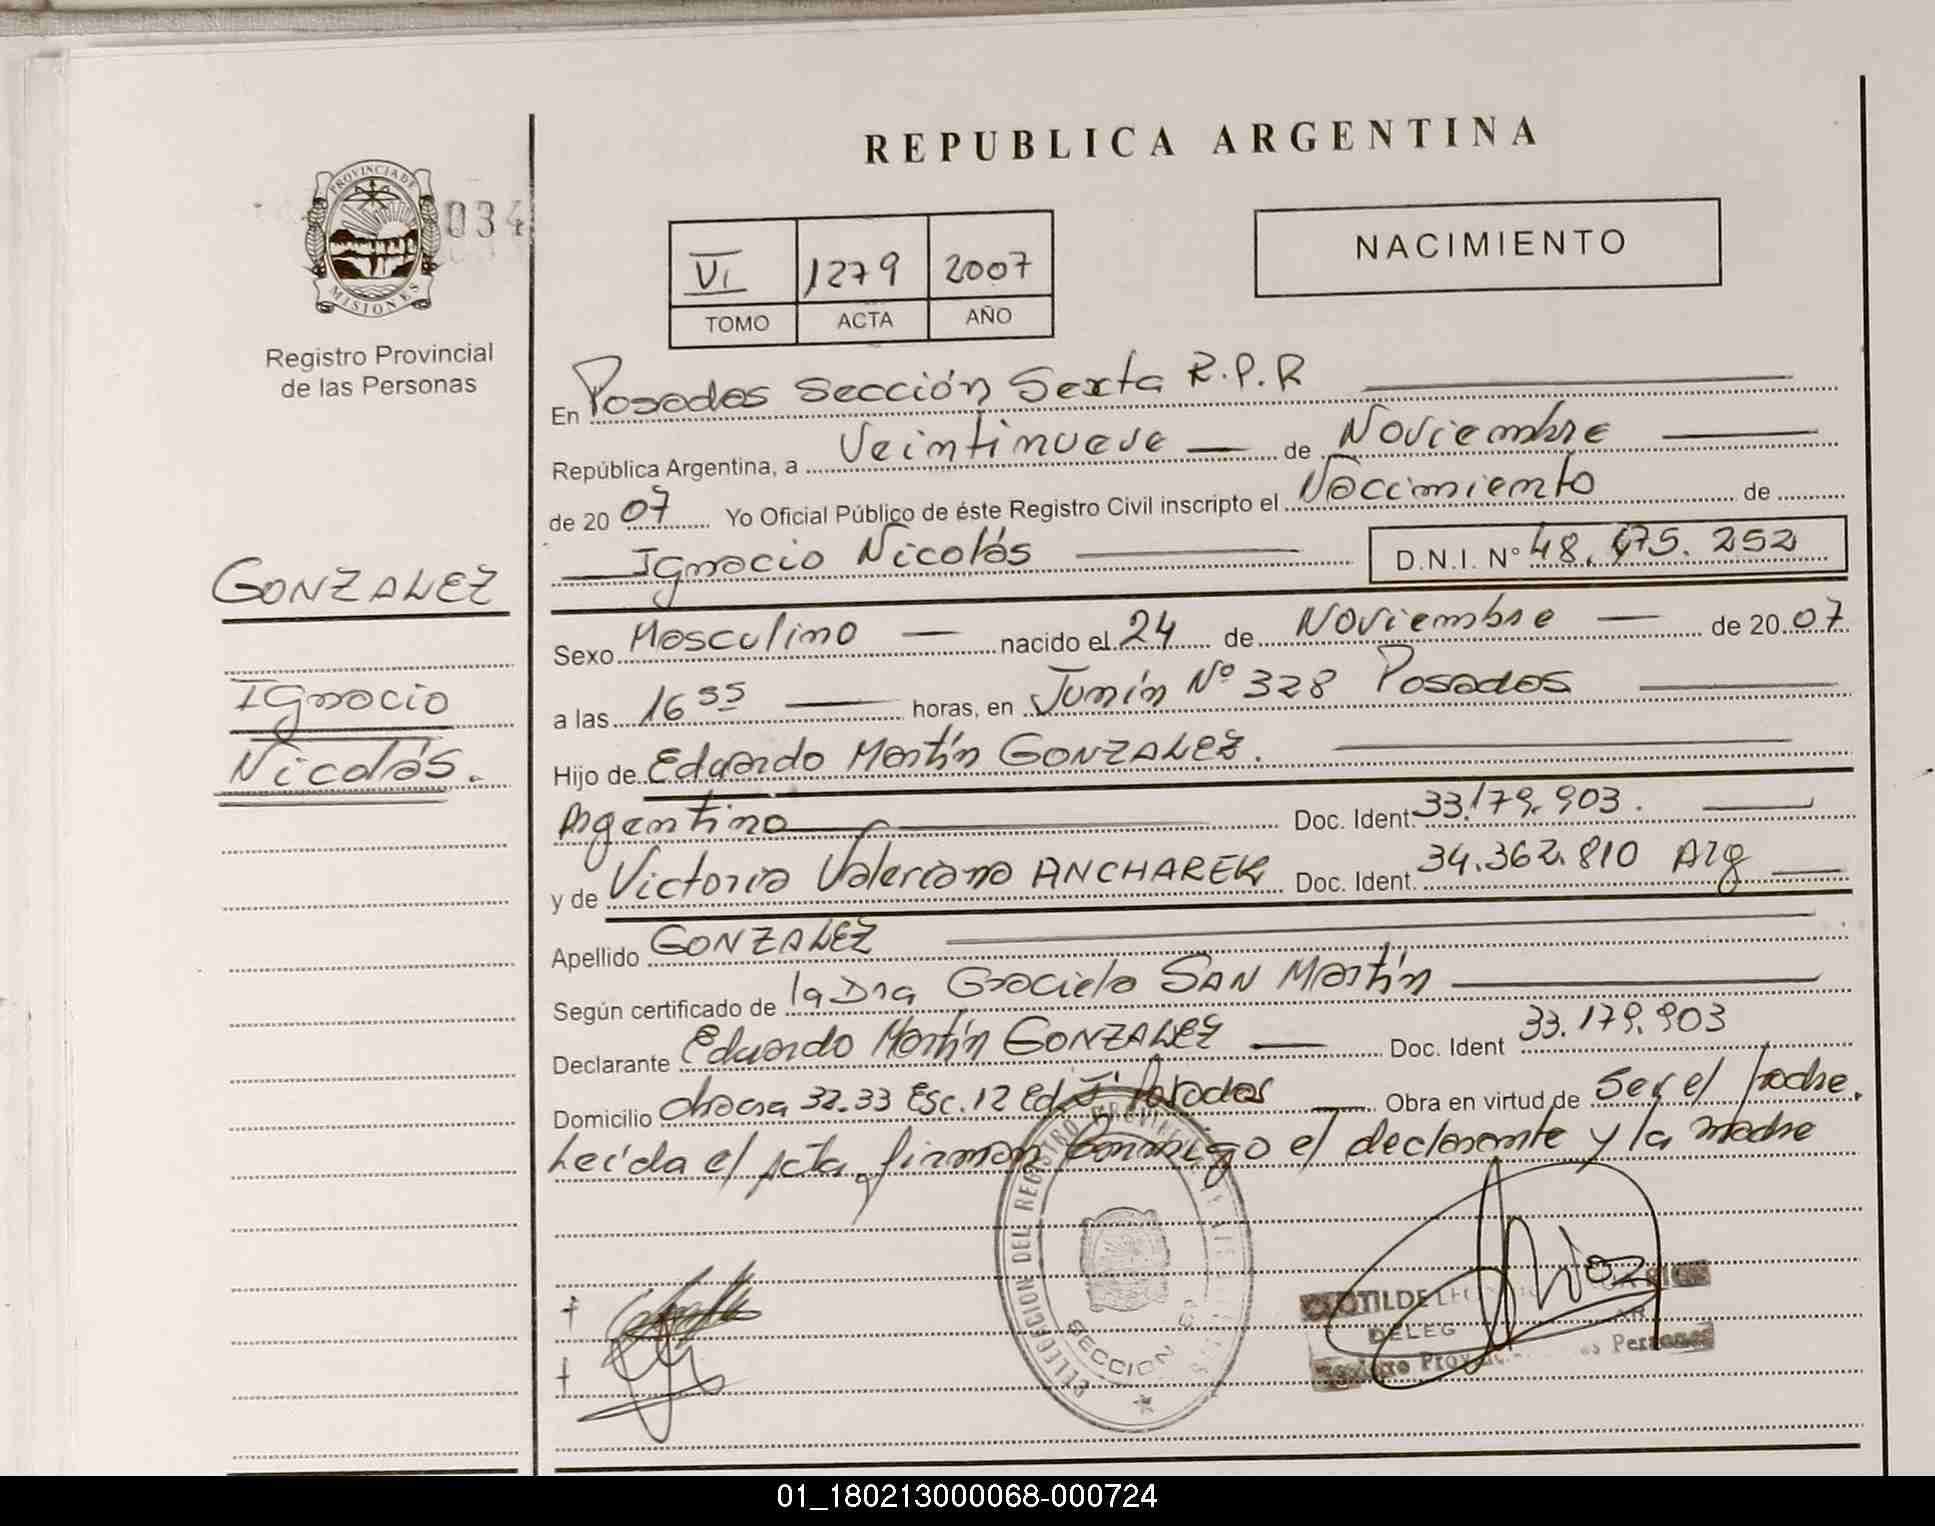 REPUBLICA ARGENTINA
PROVINCIA DE
MISIONES
034
Registro Provincial
de las Personas
VI 1279 2007
TOMO ACTA AÑO
NACIMIENTO
En Posadas Sección Sexta R.P.R
República Argentina, a Veintinueve de Noviembre
de 2007 Yo Oficial Público de éste Registro Civil inscripto el Nacimiento de
Ignacio Nicolás D.N.I. Nº 48.475.252
GONZALEZ
Ignacio
Nicolás.
Sexo Masculino nacido el 24 de Noviembre de 2007
a las 16 55 horas, en Junín Nº 328 Posadas
Hijo de Eduardo Martín GONZALEZ.
Argentino Doc. Ident. 33.179.903.
y de Victoria Valeriana ANCHAREK Doc. Ident. 34.362.810 Arg
Apellido GONZALEZ
Según certificado de la Dra Graciela SAN Martín
Declarante Eduardo Martín GONZALEZ Doc. Ident 33.179.903
Domicilio chacra 32-33 Esc. 12 Ed. J Posadas Obra en virtud de Ser el padre.
Leída el acta, firman conmigo el declarante y la madre
DELEGACION DEL REGISTRO PROVINCIAL DE LAS
SECCION
DELEG
01_180213000068-000724